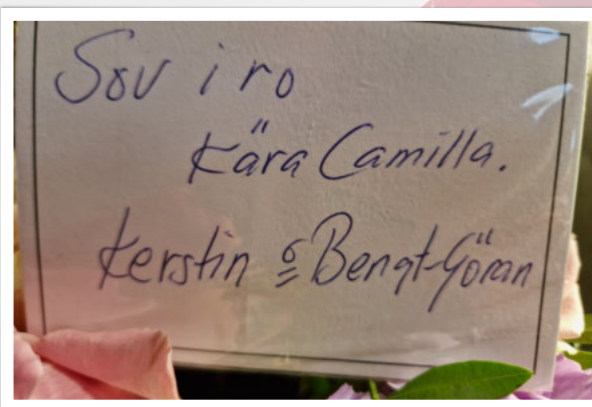 Sov i ro
Kära Camilla.
Kerstin o Bengt-Göran